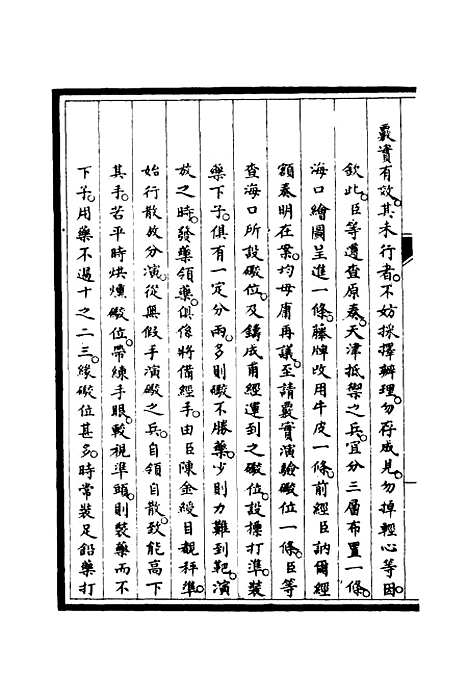 覈實有效。其未行者。不妨採擇辦理。勿存成見。勿掉輕心等因。
欽此。臣等遵查原奏。天津抵禦之兵。宜分三層布置一條。
海口繪圖呈進一條。藤牌改用牛皮一條。前經臣訥爾經
額奏明在案。均毋庸再議。至請覈實演驗礮位一條。臣等
查海口所設礮位。及鑄成甫經運到之礮位。設標打準。裝
藥下子。俱有一定分兩。多則礮不勝藥。少則力難到靶。演
放之時。發藥領藥。俱係將備經手。由臣陳金綬目覩秤準。
始行散放分演。從無假手演礮之兵。自領自散。致能高下
其手。若平時烘燻礮位。帶練手眼。較視準頭。則裝藥而不
下子。用藥不過十之二三。緣礮位甚多。時常裝足鉛藥打